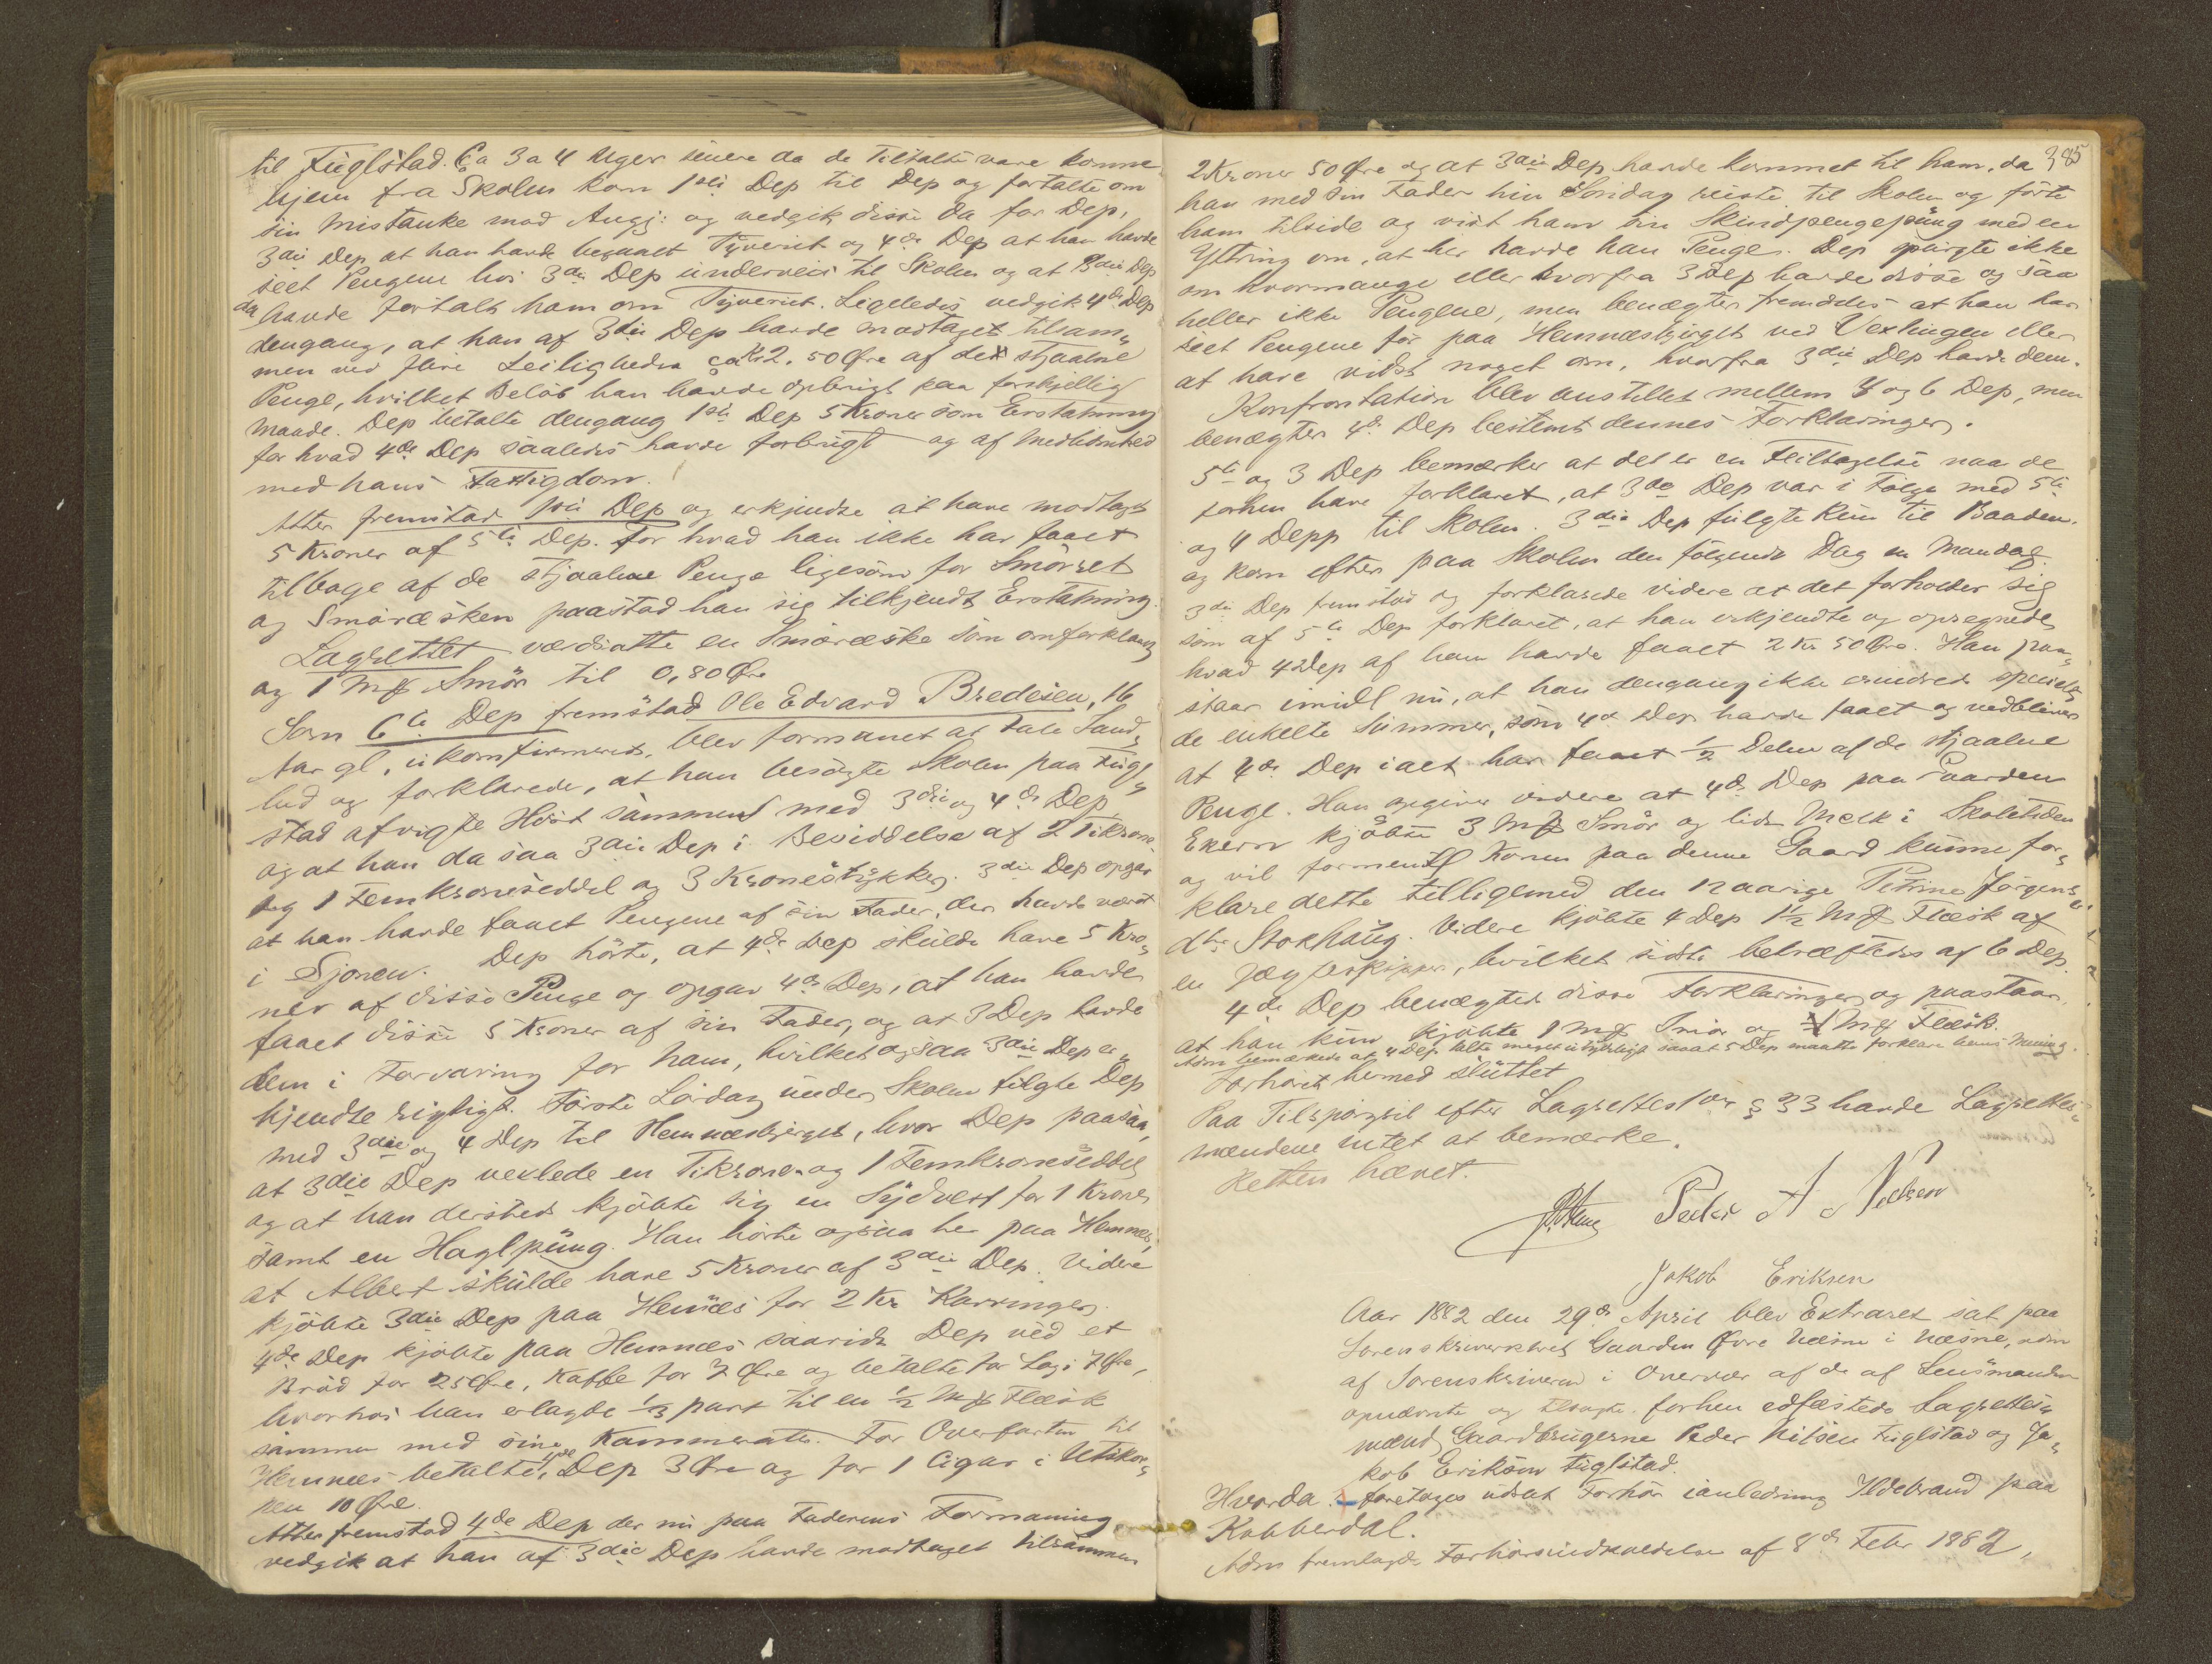 til Fuglstad. Ca 3 a 4 Uger senere da de Tiltalte vare komne
hjem fra Skolen kom 1ste Dep til Dep og fortalte om
sin Mistanke mod Angj: og vedgik disse da for Dep,
3die Dep at han havde begaaet Tyveriet og 4de Dep at han havde
seet Pengene hos 3die Dep underveis til Skolen og at 3die Dep
da havde fortalt ham om Tyveriet. Ligeledes vedgik 4de Dep
dengang, at han af 3die Dep havde modtaget tilsam-
men ved flere Leiligheder ca Kr 2.50 Øre af de stjaalne
Penge, hvilket Beløb han havde opbrugt paa forskjellig
Maade. Dep betalte dengang 1ste Dep 5 Kroner som Erstatning
for hvad 4de Dep saaledes havde forbrugt og af Medlidenhed
med hans Fattigdom.
Atter fremstod 1ste Dep og erkjendte at have modtaget
5 Kroner af 5te Dep. For hvad han ikke har faaet
tilbage af de stjaalne Penge ligesom for Smørret
og Smøræsken paastod han sig tilkjendt Erstatning.
Lagrettet værdsatte en Smøræske som omforklaret
og 1 Mk Smør til 0,80 Øre
Som 6te Dep fremstod Ole Edvard Bredesen, 16
Aar gl, ukonfirmeret, blev formanet at tale Sand-
hed og forklarede, at han besøgte Skolen paa Fugl-
stad afvigte Høst sammen med 3die og 4de Dep
og at han da saa 3die Dep i Besiddelse af 2 Tikrone-
og 1 Femkroneseddel og 3 Kronestykker. 3die Dep opgav
at han havde faaet Pengene af sin Fader, der havde været
i Sjonen. Dep hørte, at 4de Dep skulde have 5 Kro-
ner af disse Penge og opgav 4de Dep, at han havde
faaet disse 5 Kroner af sin Fader, og at 3 Dep havde
dem i Forvaring for ham, hvilket ogsaa 3die Dep er-
kjendte rigtigt. Første Lørdag under Skolen fulgte Dep
med 3die og 4 Dep til Hemnesbjerget, hvor Dep paasaa,
at 3die Dep vexlede en Tikrone og 1 Femkroneseddel
og at han dersteds kjøbte sig en Sydvest for 1 Krone
samt en Haglpung. Han hørte ogsaa her paa Hemnes,
at Albert skulde have 5 Kroner af 3die Dep. Videre
kjøbte 3die Dep paa Hemnes for 2 Kr Kavringer.
4de Dep kjøbte paa Hemnes saavidt Dep ved et
Brød for 25 Øre, Kaffe for 7 Øre og betalte for Logi 7 Øre,
hvorhos han erlagde 1/3 part til en 1/2 Mk Flæsk
sammen med sine Kammerater. For Overfarten til
Hemnes betalte 4de Dep 3 Øre og for 1 Cigar i Utskar-
pen 10 Øre.
Atter fremstod 4de Dep der nu paa Faderens Formaning
vedgik at han af 3die Dep havde modtaget tilsammen
385
2 Kroner 50 Øre og at 3die Dep havde kommet til ham, da
han med sin Fader hin Søndag reiste til Skolen og førte
ham tilside og vist ham sin Skindpengepung med en
Yttring om, at her havde han Penge. Dep spurgte ikke
om hvormange eller hvorfra 3 Dep havde disse og saa
heller ikke Pengene, men benægter fremdeles at han har
seet Pengene før paa Hemnesbjerget ved Vexlingen eller
at have vidst noget om, hvorfra 3die Dep havde dem.
Konfrontation blev anstillet mellem 4 og 6 Dep, men
benægter 4de Dep bestemt dennes Forklaringer.
5te og 3 Dep bemærker at det er en Feiltagelse naar de
forhen have forklaret, at 3die Dep var i Følge med 5te
og 4 Depp til Skolen. 3die Dep fulgte kun til Baaden
og kom efter paa Skolen den følgende Dag en Mandag.
3die Dep fremstod og forklarede videre at det forholder sig
som af 5te Dep forklaret, at han erkjendte og opregnede
hvad 4 Dep af ham havde faaet 2 Kr 50 Øre. Han paa-
staar imidl nu, at han dengang ikke erindrede specielt
de enkelte Summer, som 4de Dep havde faaet og vedbliver
at 4de Dep ialt har faaet 1/2 Delen af de stjaalne
Penge. Han opgiver videre at 4de Dep paa Gaarden
Ekern kjøbte 3 Mk Smør og lidt Melk i Skoletiden
og vil formentl Konen paa denne Gaard kunne for-
klare dette tilligemed den 12 aarige Petrine Jørgens-
dtr Stokhaug. Videre kjøbte 4 Dep 1 1/2 Mk Flæsk af
en Jægteskipper, hvilket sidste bekræftedes af 6 Dep.
4de Dep benægtet disse Forklaringer og paastaar,
at han kun kjøbte 1 Mk Smør og 1 Mk Flæsk.
Adm bemærkede at 4 Dep talte meget utydeligt saaat 5 Dep maatte forklare hans Mening.
Forhøret hermed sluttet
Paa Tilspørgsel efter Lagrettesloven § 33 havde Lagrettes-
mændene Intet at bemærke.
Retten hævet.
Peder A Nilsen
Jakob Eriksen
Aar 1882 den 29de April blev Extraret sat paa
Sorenskriverkret Gaarden Øvre Næsne i Næsne, adm
af Sorenskriveren i Overvær af de af Lensmanden
opnævnte og tilsagte forhen edfæstede Lagrettes-
mænd, Gaardbrugerne Peder Nilsen Fuglstad og Ja-
kob Eriksen Fuglstad.
Hvorda foretoges udsat Forhør ianledning Ildebrand paa
Kobberdal.
Adm fremlagde Forhørsindkaldelse af 8de Febr 1882,